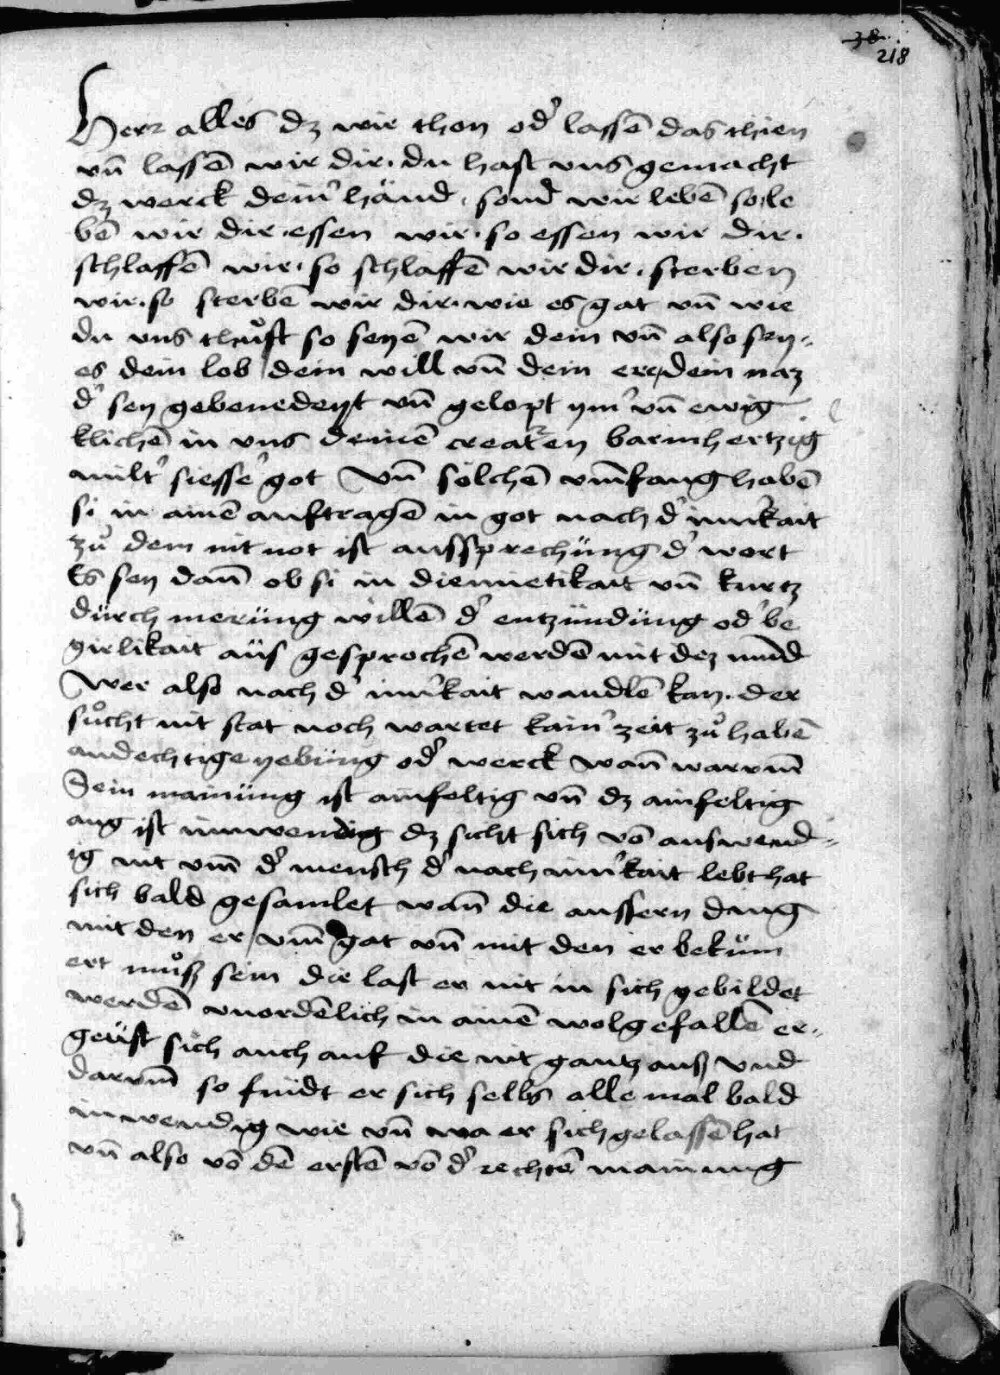 38
218
Herr alles dz wir thon od̕ lassē das thien
vn̄ lassē wir dir . du hast uns gemacht
dz werck dein̕ händ , sond̕ wir lebē so le
bē wir dir . essen wir . so essen wir dir .
schlaffē wir . so schlaffē wir dir . sterben
wir . so sterbē wir dir . wie es gat vn̄ wie
du uns thuͦst so seyē wir dein vn̄ also sey-
es dein lob dein will vn̄ dein ere dein naz
d̕ sey gebenedeyt vn̄ gelopt ym̕ vn̄ ewig
klichē in uns deinē creaturen barmhertzig
milt̕ siesse̕ got Vn̄ sölchē vm̄fang habē
si in ainē auftragē in got nach d̕ inn̕kait
zuͦ dem nit not ist aussprechüng d̕ wort
Es sey dan̄ ob si in diemietikait vn̄ kurtz
dürch merüng willē d̕ entzündüng od̕ be
girlikait aüs gesprochē werdē mit dez mund
Wer also nach d̕ inn̕kait wandlē kan . der
suͦcht nit stat noch wartet kain̕ zeit zuͦ habē
andechtige yebüng od̕ werck wan̄ warum̄
Sein mainüng ist ainfeltig vn̄ dz ainfeltig
aug ist inwendig dz sicht sich vō auswend-
ig nit vm̄ d̕ mensch d̕ nach inn̕kait lebt hat
sich bald gesamlet wan̄ die aussern ding
mit den er vm̄ gat vn̄ mit den er bekum̄
ert muͦß sein die last er nit in sich gebildet
werdē vnordēlich in ainē wolgefallē er-
geüst sich auch auf die nit gantz auß vnd
darum̄ so findt er sich selbs alle mal bald
inwendig wie vn̄ wa er sich gelassē hat
vn̄ also vō dē erstē vō d̕ rechtē mainung